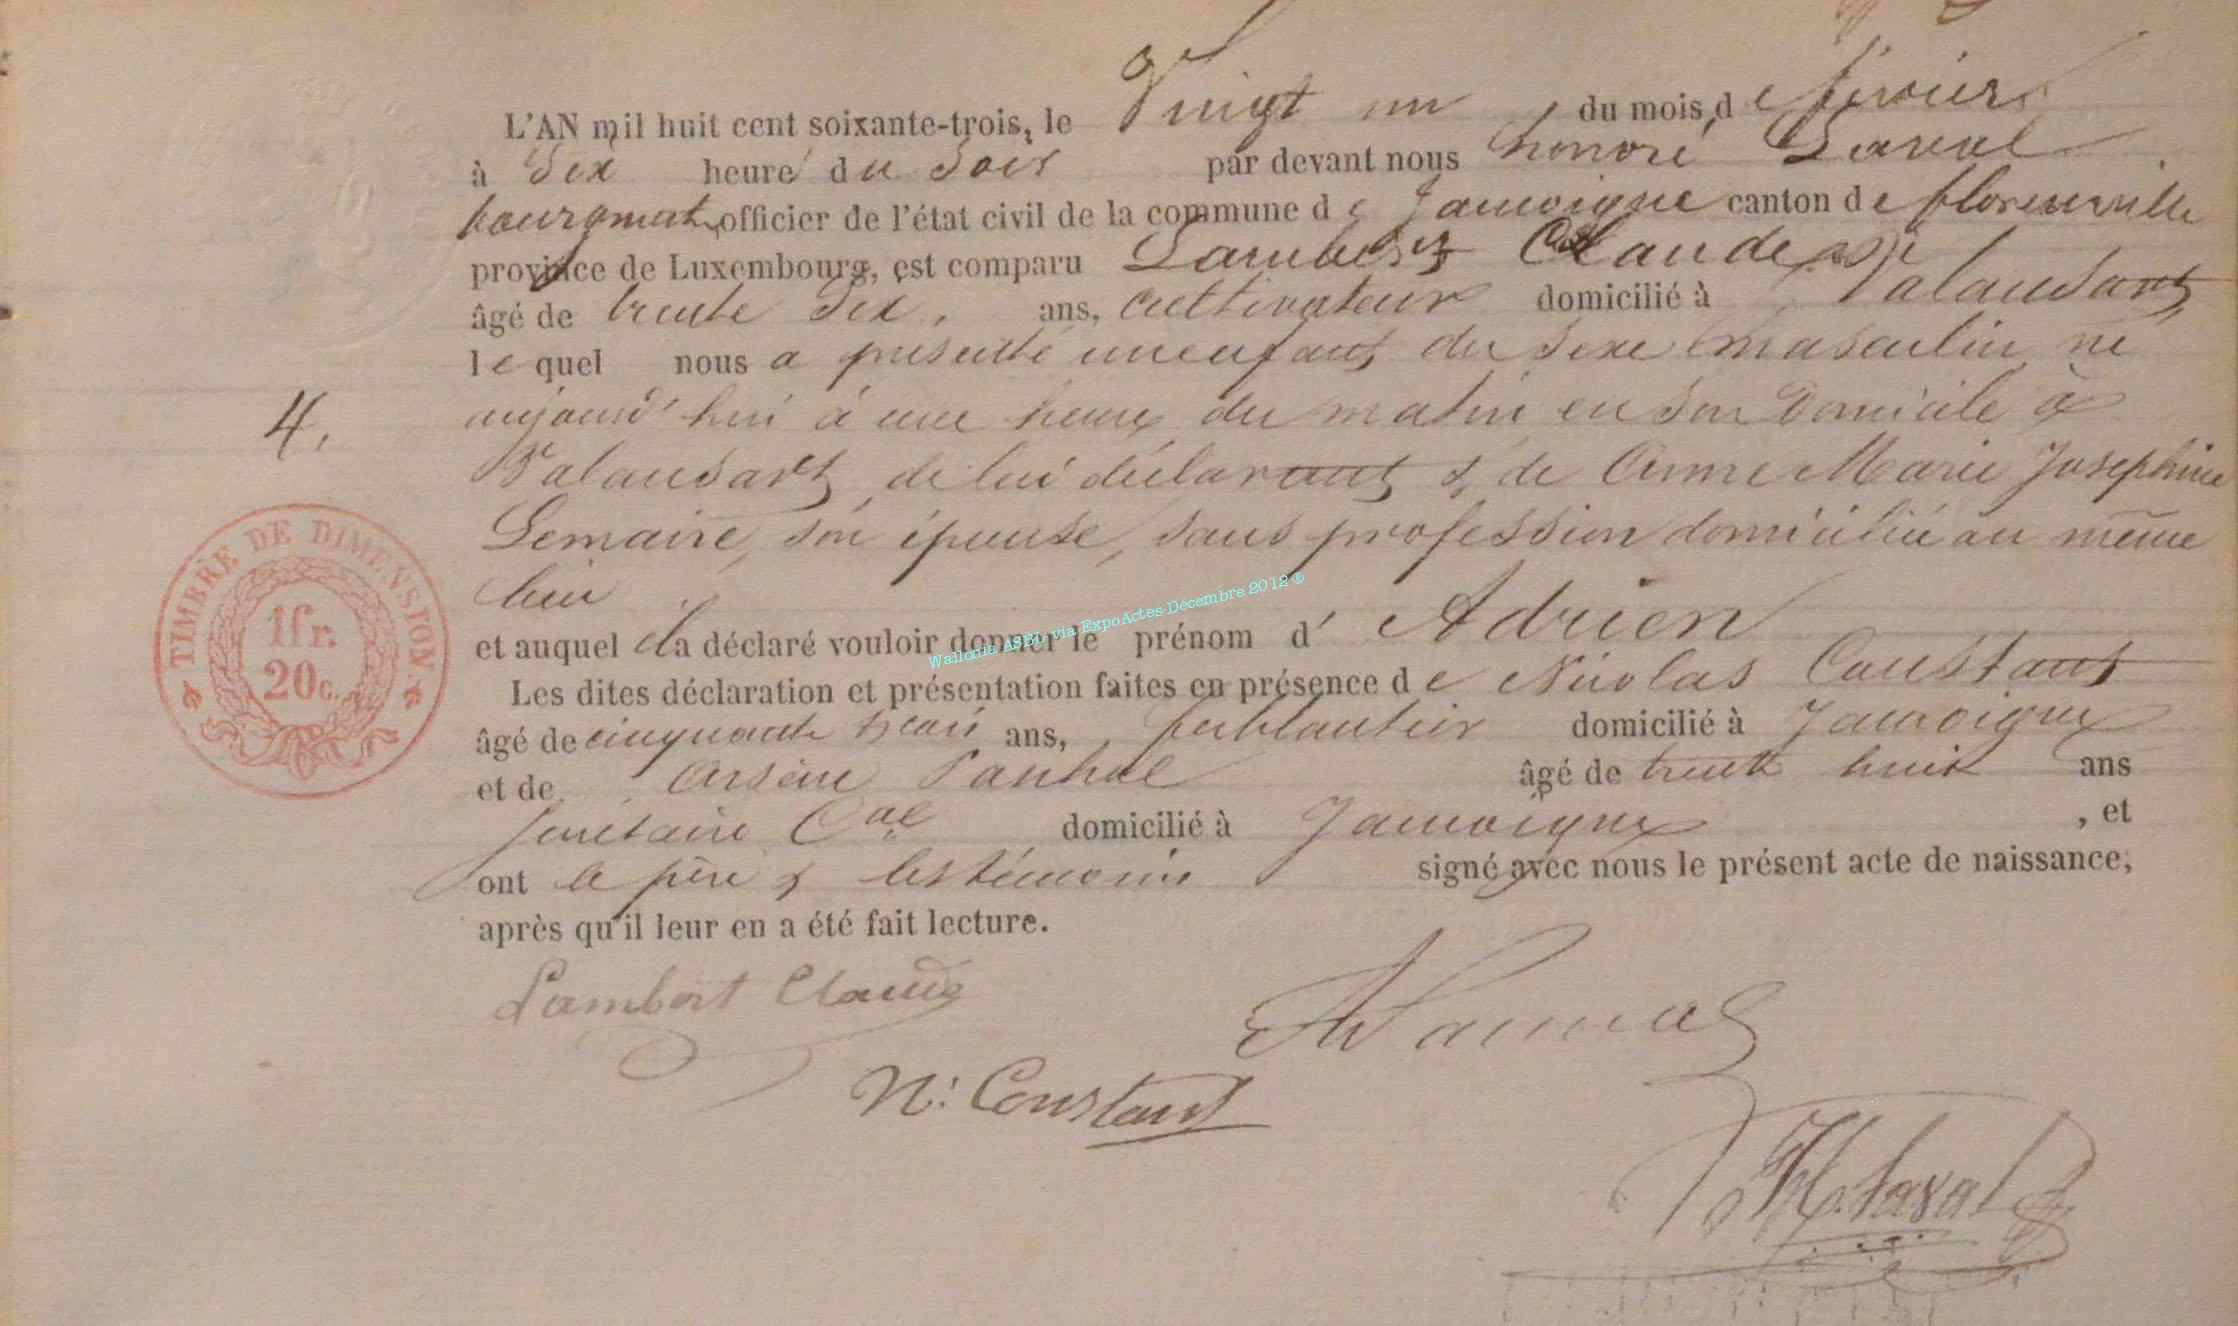 L'AN mil huit cent soixante-trois, le Vingt un du mois de février
à Six heure du Soir par devant nous honoré Laval
bourgmestre officier de l'état civil de la commune de Jamoigne canton de florenville
province de Luxembourg, est comparu Lambert Claude
âgé de trente Six ans, cultivateur domicilié à Valansart
lequel nous a présenté un enfant du Sexe masculin né
aujourd'hui à une heure du matin en Son Domicile à
Valansart, de lui déclarant & de Anne Marie Josephine
Lemaire, son épouse, sans profession domiciliée au même
lieu
et auquel il a déclaré vouloir donner le prénom d' Adrien
Les dites déclaration et présentation faites en présence de Nicolas Constant
âgé de cinquante trois ans, ferblantier domicilié à Jamoigne
et de Arsène âgé de trente huit ans
Secrétaire Cal domicilié à Jamoigne , et
ont le père & les témoins signé avec nous le présent acte de naissance,
après qu'il leur en a été fait lecture.
4.
TIMBRE DE DIMENSION
1fr.
20c.
Wallonia ASBL via ExpoActes Décembre 2012 ®
Lambert Claude
N: Constant
H. Laval